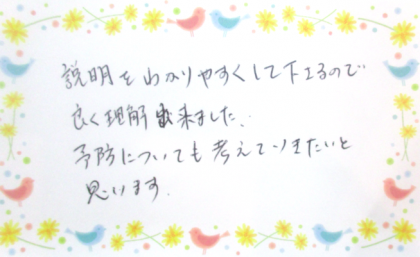 説明をわかりやすくして下さるので
良く理解出来ました。
予防についても考えていきたいと
思います。